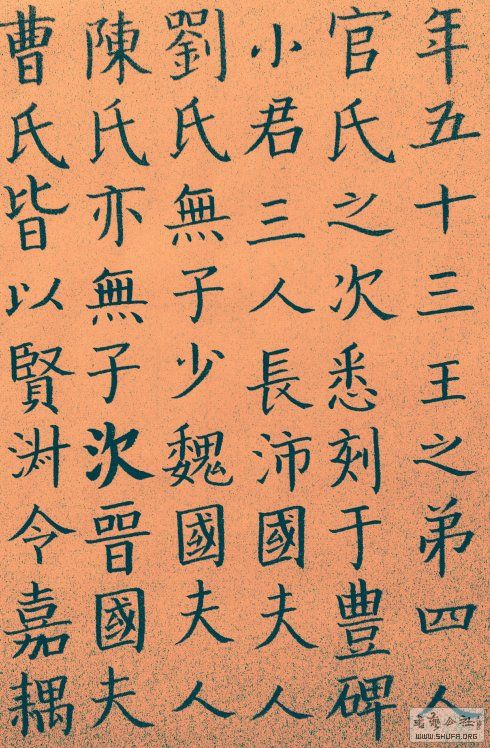 年五十三王之弟四人
官氏之次悉刻于豐碑
小君三人長沛國夫人
劉氏無子少魏國夫人
陳氏亦無子次晉國夫
曹氏皆以賢淑令嘉耦
書藝公社
WWW.SHUFA.ORG